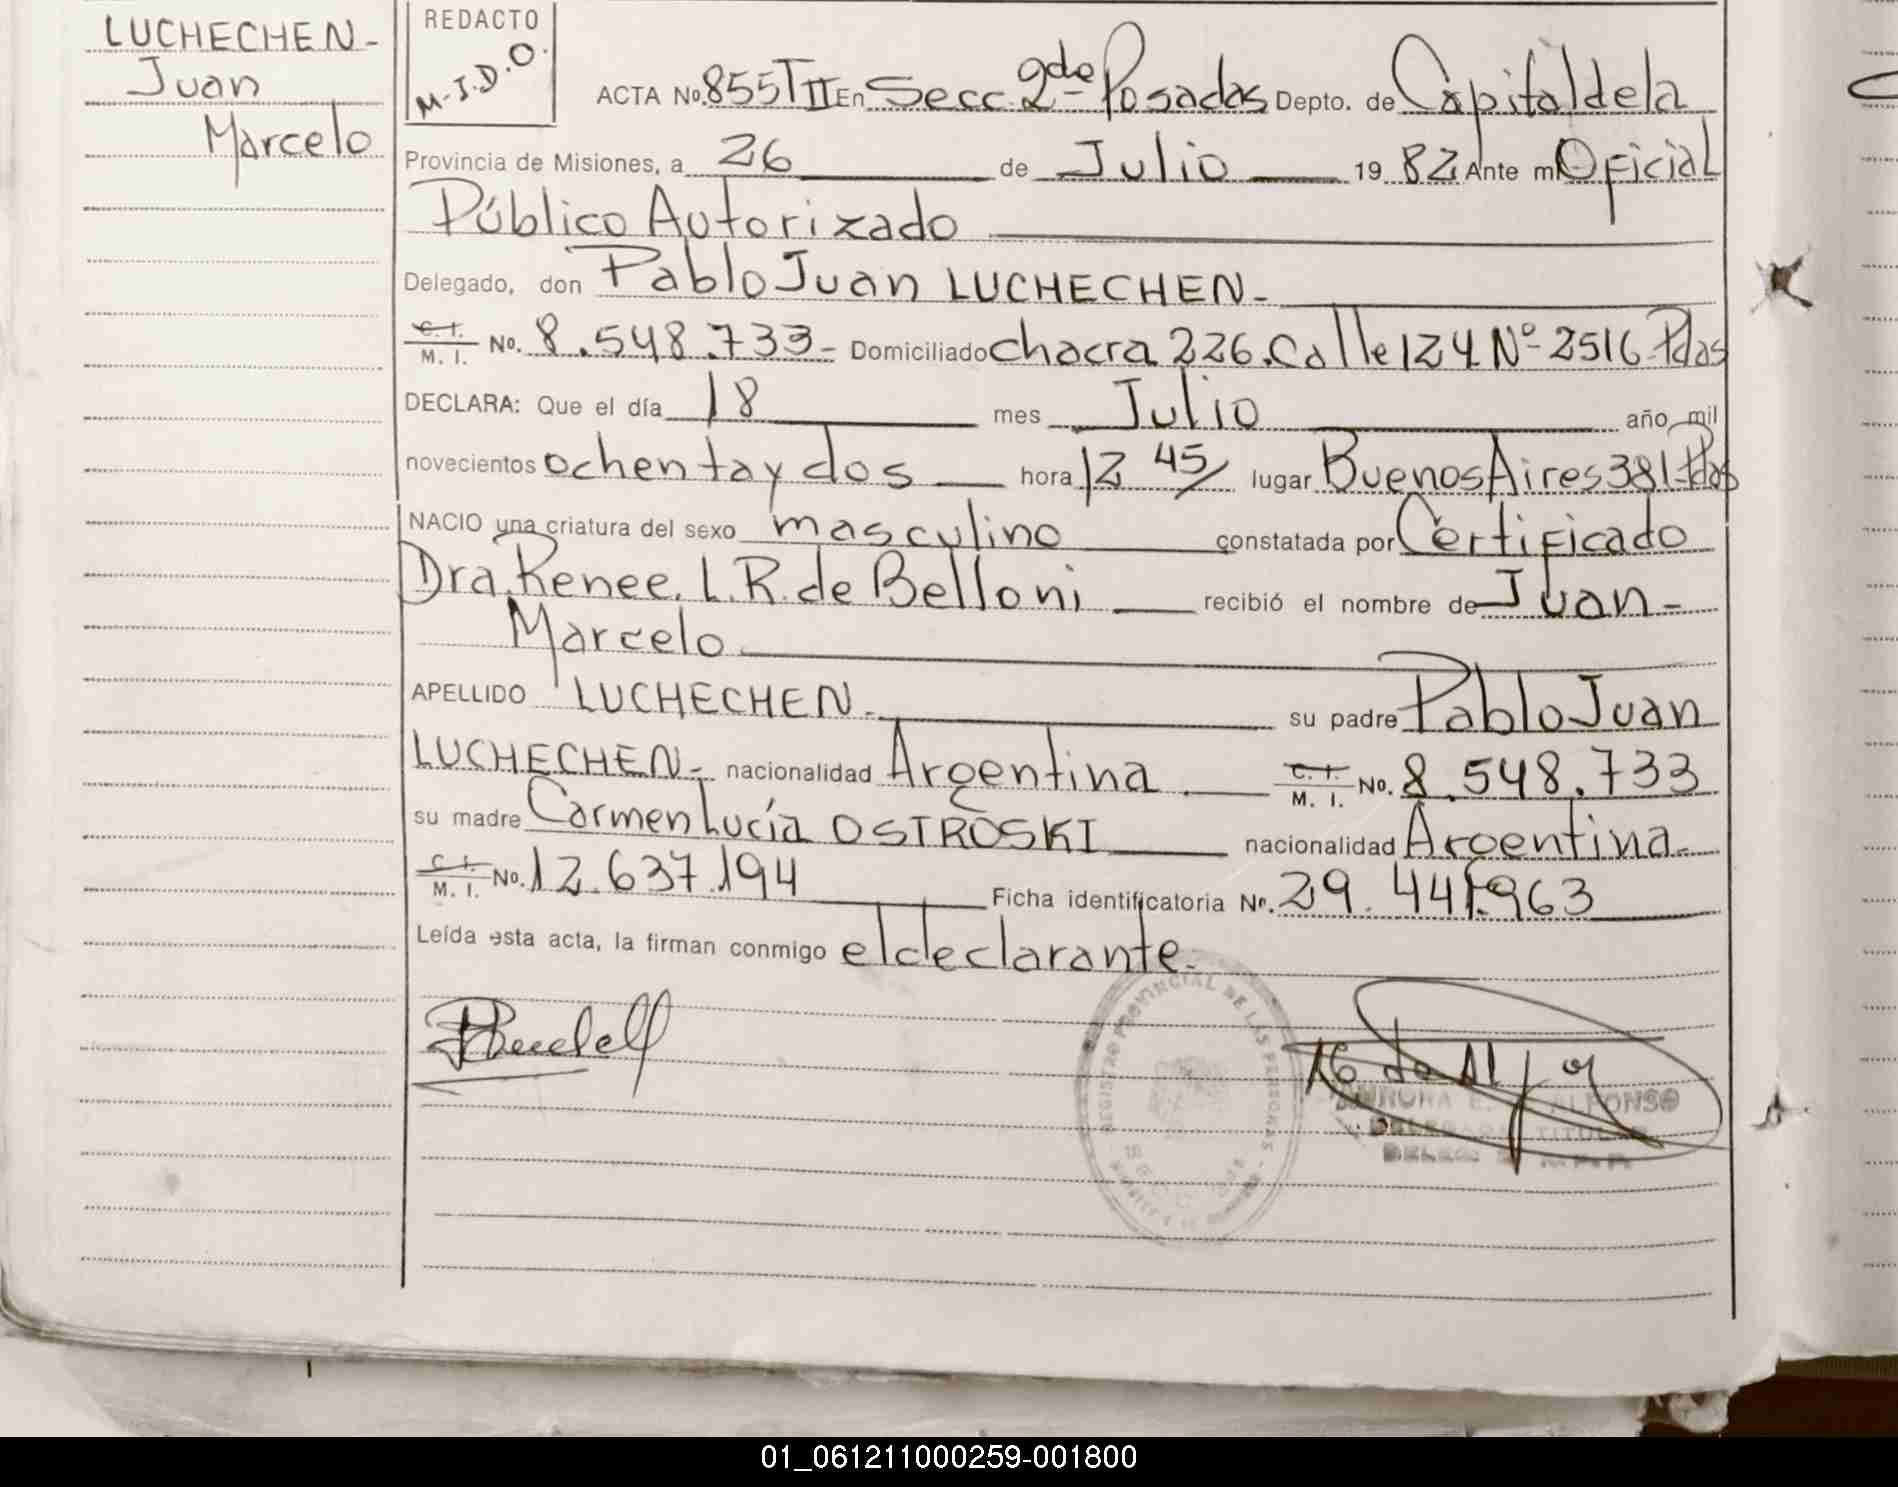 LUCHECHEN-
Juan
Marcelo
REDACTO
M.J.D.O.
ACTA No. 855 T II En Secc. 2da Posadas Depto. de Capital de la
Provincia de Misiones, a 26 de Julio 1982 Ante mi Oficial
Público Autorizado
Delegado, don Pablo Juan LUCHECHEN-
C. I.
M. I. No. 8.548.733- Domiciliado chacra 226. Calle 124 Nº 2516 Pdas
DECLARA: Que el día 18 mes Julio año mil
novecientos ochenta y dos hora 12 45/ lugar Buenos Aires 381-Pdas
NACIO una criatura del sexo masculino constatada por Certificado
Dra. Renee. L. R. de Belloni recibió el nombre de Juan-
Marcelo
APELLIDO LUCHECHEN- su padre Pablo Juan
LUCHECHEN- nacionalidad Argentina C. I.
M. I. No. 8.548.733
su madre Carmen Lucía OSTROSKI nacionalidad Argentina-
C. I.
M. I. No. 12.637.194 Ficha identificatoria No. 29.441.963
Leída esta acta, la firman conmigo el declarante.
REGISTRO PROVINCIAL DE LAS PERSONAS
ALFONSO
01_061211000259-001800